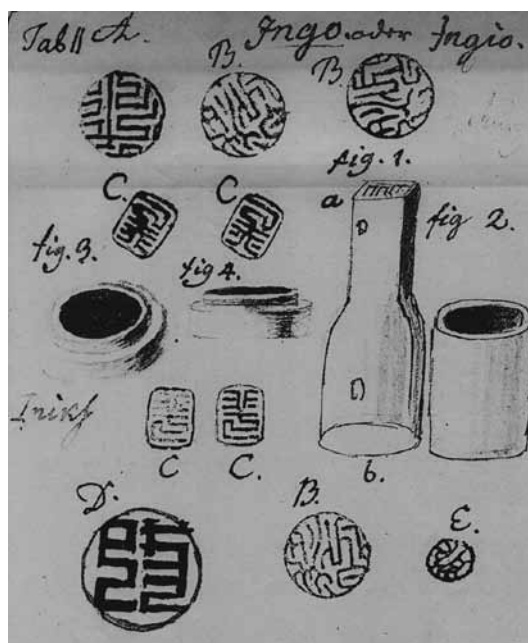 Tab II A. Ingo. oder Ingio.
B. B.
fig. 1.
C. C. a
fig. 3. fig 4. fig 2.
C C. b.
D. B. E.